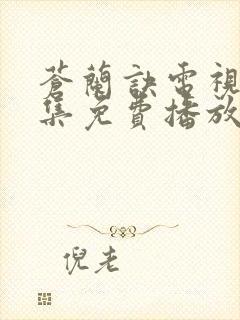 蒼蘭訣電視
集免費播放
倪老